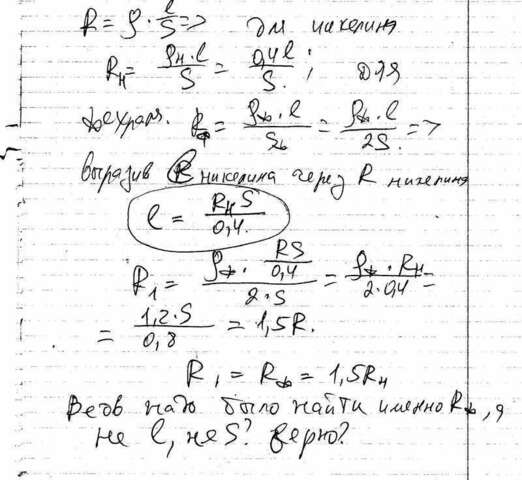 R = ρ · l/S => для никелина
Rн = ρн · l / S = 0,4 l / S. ; для
фехрал. Rф = ρф · l / Sф = ρф · l / 2S. =>
выразив l никелина через R никелина
l = Rн S / 0,4.
R1 = ρф · RS/0,4 / 2·S = ρф · Rн / 2·0,4 =
= 1,2·S / 0,8 = 1,5R.
R1 = Rф = 1,5Rн
Ведь надо было найти именно Rф, а
не l, не S? верно?